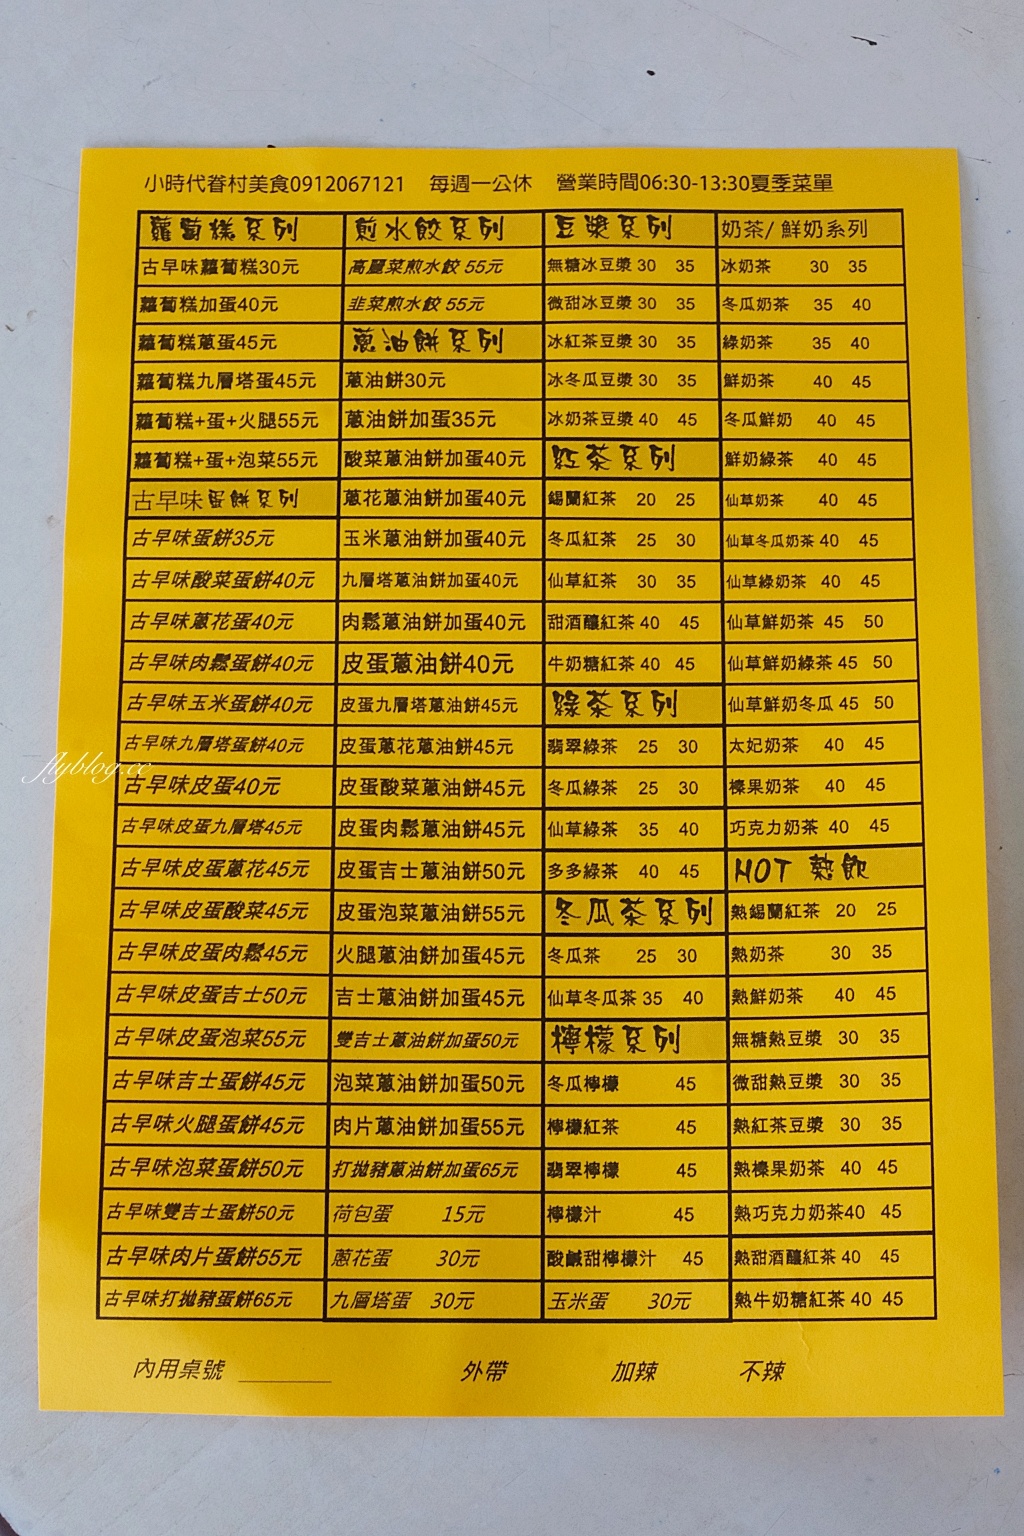 小時代眷村美食0912067121 每週一公休 營業時間06:30-13:30夏季菜單
蘿蔔糕系列 煎水餃系列 豆漿系列 奶茶/ 鮮奶系列
古早味蘿蔔糕30元 高麗菜煎水餃 55元 無糖冰豆漿 30 35 冰奶茶 30 35
蘿蔔糕加蛋40元 韭菜煎水餃 55元 微甜冰豆漿 30 35 冬瓜奶茶 35 40
蘿蔔糕蔥蛋45元 蔥油餅系列 冰紅茶豆漿 30 35 綠奶茶 35 40
蘿蔔糕九層塔蛋45元 蔥油餅30元 冰冬瓜豆漿 30 35 鮮奶茶 40 45
蘿蔔糕+蛋+火腿55元 蔥油餅加蛋35元 冰奶茶豆漿 40 45 冬瓜鮮奶 40 45
蘿蔔糕+蛋+泡菜55元 酸菜蔥油餅加蛋40元 紅茶系列 鮮奶綠茶 40 45
古早味蛋餅系列 蔥花蔥油餅加蛋40元 錫蘭紅茶 20 25 仙草奶茶 40 45
古早味蛋餅35元 玉米蔥油餅加蛋40元 冬瓜紅茶 25 30 仙草冬瓜奶茶 40 45
古早味酸菜蛋餅40元 九層塔蔥油餅加蛋40元 仙草紅茶 30 35 仙草綠奶茶 40 45
古早味蔥花蛋40元 肉鬆蔥油餅加蛋40元 甜酒釀紅茶 40 45 仙草鮮奶茶 45 50
古早味肉鬆蛋餅40元 皮蛋蔥油餅40元 牛奶糖紅茶 40 45 仙草鮮奶綠茶 45 50
古早味玉米蛋餅40元 皮蛋九層塔蔥油餅45元 綠茶系列 仙草鮮奶冬瓜 45 50
古早味九層塔蛋餅40元 皮蛋蔥花蔥油餅45元 翡翠綠茶 25 30 太妃奶茶 40 45
古早味皮蛋40元 皮蛋酸菜蔥油餅45元 冬瓜綠茶 25 30 榛果奶茶 40 45
古早味皮蛋九層塔45元 皮蛋肉鬆蔥油餅45元 仙草綠茶 35 40 巧克力奶茶 40 45
古早味皮蛋蔥花45元 皮蛋吉士蔥油餅50元 多多綠茶 40 45 HOT 熱飲
古早味皮蛋酸菜45元 皮蛋泡菜蔥油餅55元 冬瓜茶系列 熱錫蘭紅茶 20 25
古早味皮蛋肉鬆45元 火腿蔥油餅加蛋45元 冬瓜茶 25 30 熱奶茶 30 35
古早味皮蛋吉士50元 吉士蔥油餅加蛋45元 仙草冬瓜茶 35 40 熱鮮奶茶 40 45
古早味皮蛋泡菜55元 雙吉士蔥油餅加蛋50元 檸檬系列 無糖熱豆漿 30 35
古早味吉士蛋餅45元 泡菜蔥油餅加蛋50元 冬瓜檸檬 45 微甜熱豆漿 30 35
古早味火腿蛋餅45元 肉片蔥油餅加蛋55元 檸檬紅茶 45 熱紅茶豆漿 30 35
古早味泡菜蛋餅50元 打拋豬蔥油餅加蛋65元 翡翠檸檬 45 熱榛果奶茶 40 45
古早味雙吉士蛋餅50元 荷包蛋 15元 檸檬汁 45 熱巧克力奶茶40 45
古早味肉片蛋餅55元 蔥花蛋 30元 酸鹹甜檸檬汁 45 熱甜酒釀紅茶 40 45
古早味打拋豬蛋餅65元 九層塔蛋 30元 玉米蛋 30元 熱牛奶糖紅茶 40 45
內用桌號 ________ 外帶 加辣 不辣
flyblog.cc